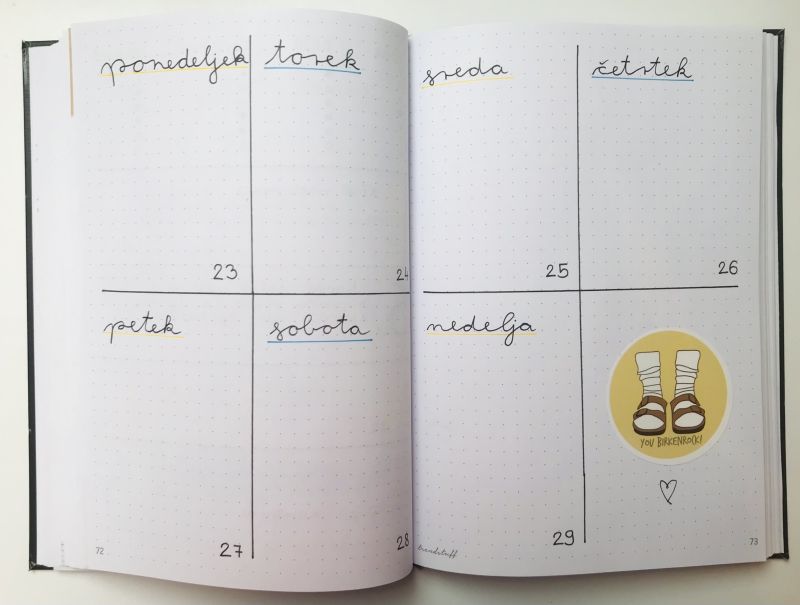 ponedeljek
23
torek
24
petek
27
sobota
28
72
sreda
25
četrtek
26
nedelja
29
YOU BIRKENROCK!
trendstuff
73